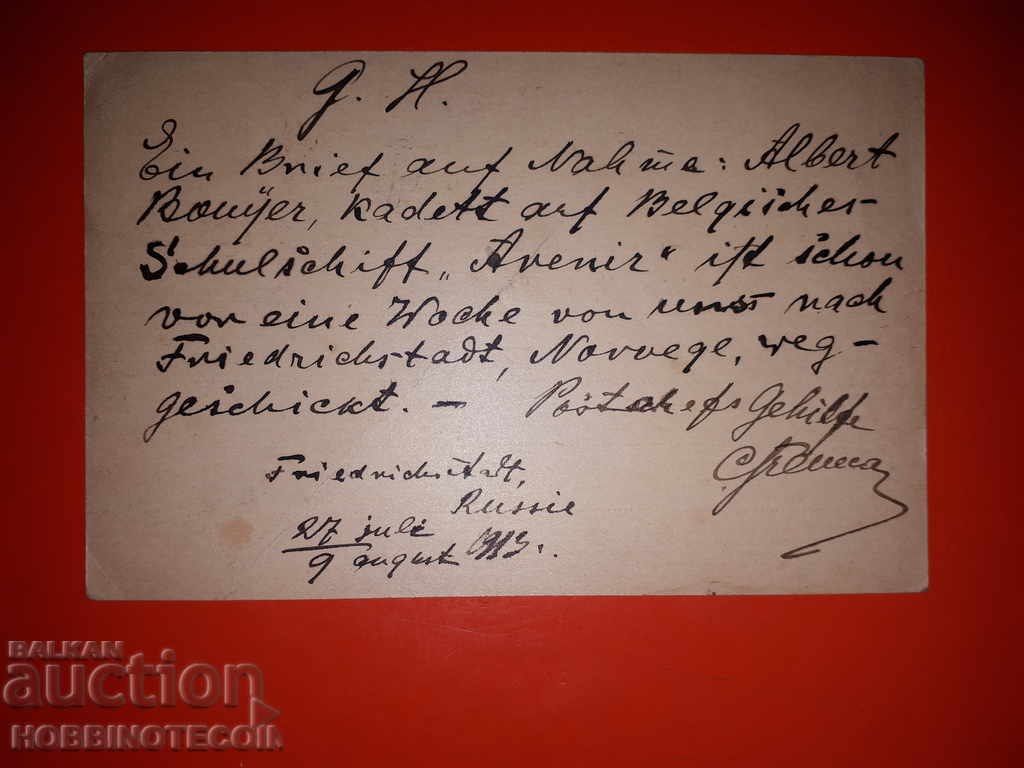 G. H.
Ein Brief auf Nahme: Albert
Bouyer, Kadett auf Belgisches-
Schulschiff „Avenir“ ist schon
vor eine Woche von uns nach
Friedrichstadt, Norvege, weg-
geschickt. — Postchefs Gehilfe
Friedrichstadt,
Russie
27 juli
9 august 1913.
BALKAN
auction
HOBBINOTECOIN